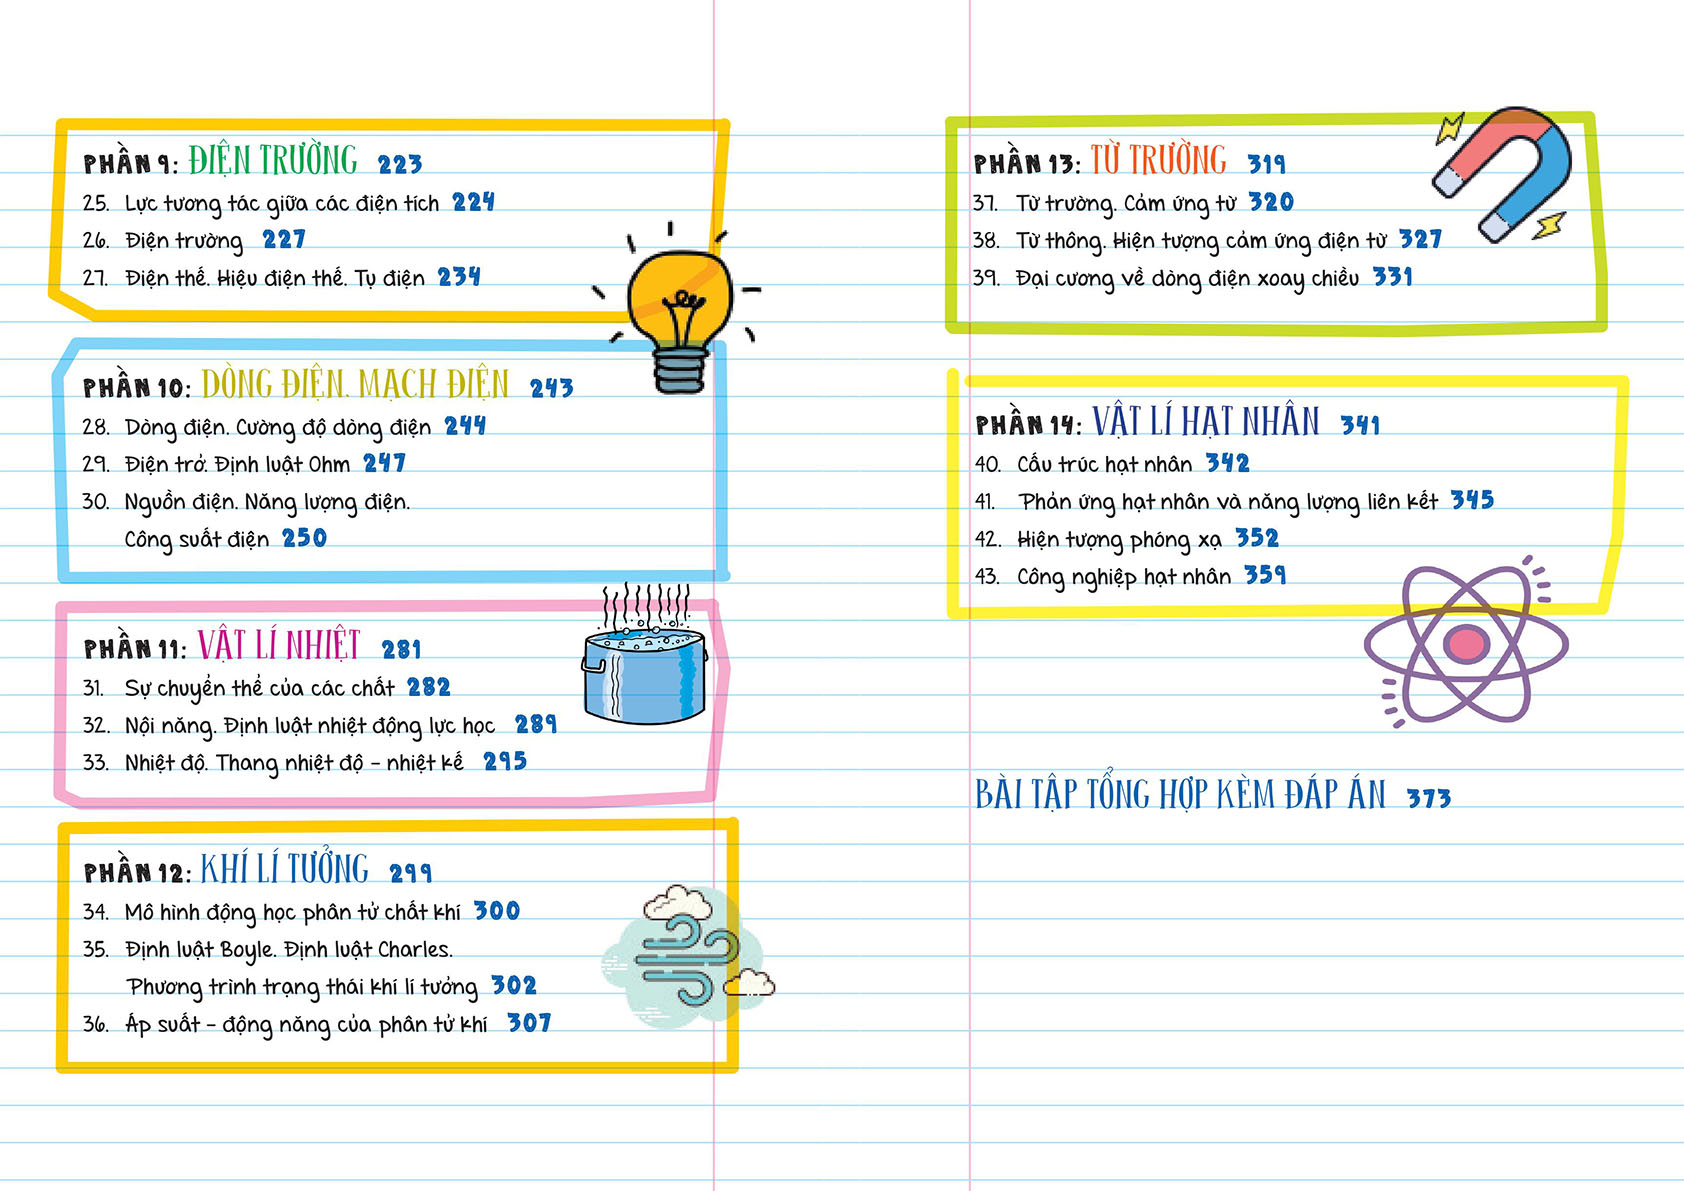 PHẦN 9: ĐIỆN TRƯỜNG 223
25. Lực tương tác giữa các điện tích 224
26. Điện trường 227
27. Điện thế. Hiệu điện thế. Tụ điện 234
PHẦN 10: DÒNG ĐIỆN. MẠCH ĐIỆN 243
28. Dòng điện. Cường độ dòng điện 244
29. Điện trở. Định luật Ohm 247
30. Nguồn điện. Năng lượng điện.
Công suất điện 250
PHẦN 11: VẬT LÍ NHIỆT 281
31. Sự chuyển thể của các chất 282
32. Nội năng. Định luật nhiệt động lực học 289
33. Nhiệt độ. Thang nhiệt độ - nhiệt kế 295
PHẦN 12: KHÍ LÍ TƯỞNG 299
34. Mô hình động học phân tử chất khí 300
35. Định luật Boyle. Định luật Charles.
Phương trình trạng thái khí lí tưởng 302
36. Áp suất - động năng của phân tử khí 307
PHẦN 13: TỪ TRƯỜNG 319
37. Từ trường. Cảm ứng từ 320
38. Từ thông. Hiện tượng cảm ứng điện từ 327
39. Đại cương về dòng điện xoay chiều 331
PHẦN 14: VẬT LÍ HẠT NHÂN 341
40. Cấu trúc hạt nhân 342
41. Phản ứng hạt nhân và năng lượng liên kết 345
42. Hiện tượng phóng xạ 352
43. Công nghiệp hạt nhân 359
BÀI TẬP TỔNG HỢP KÈM ĐÁP ÁN 373